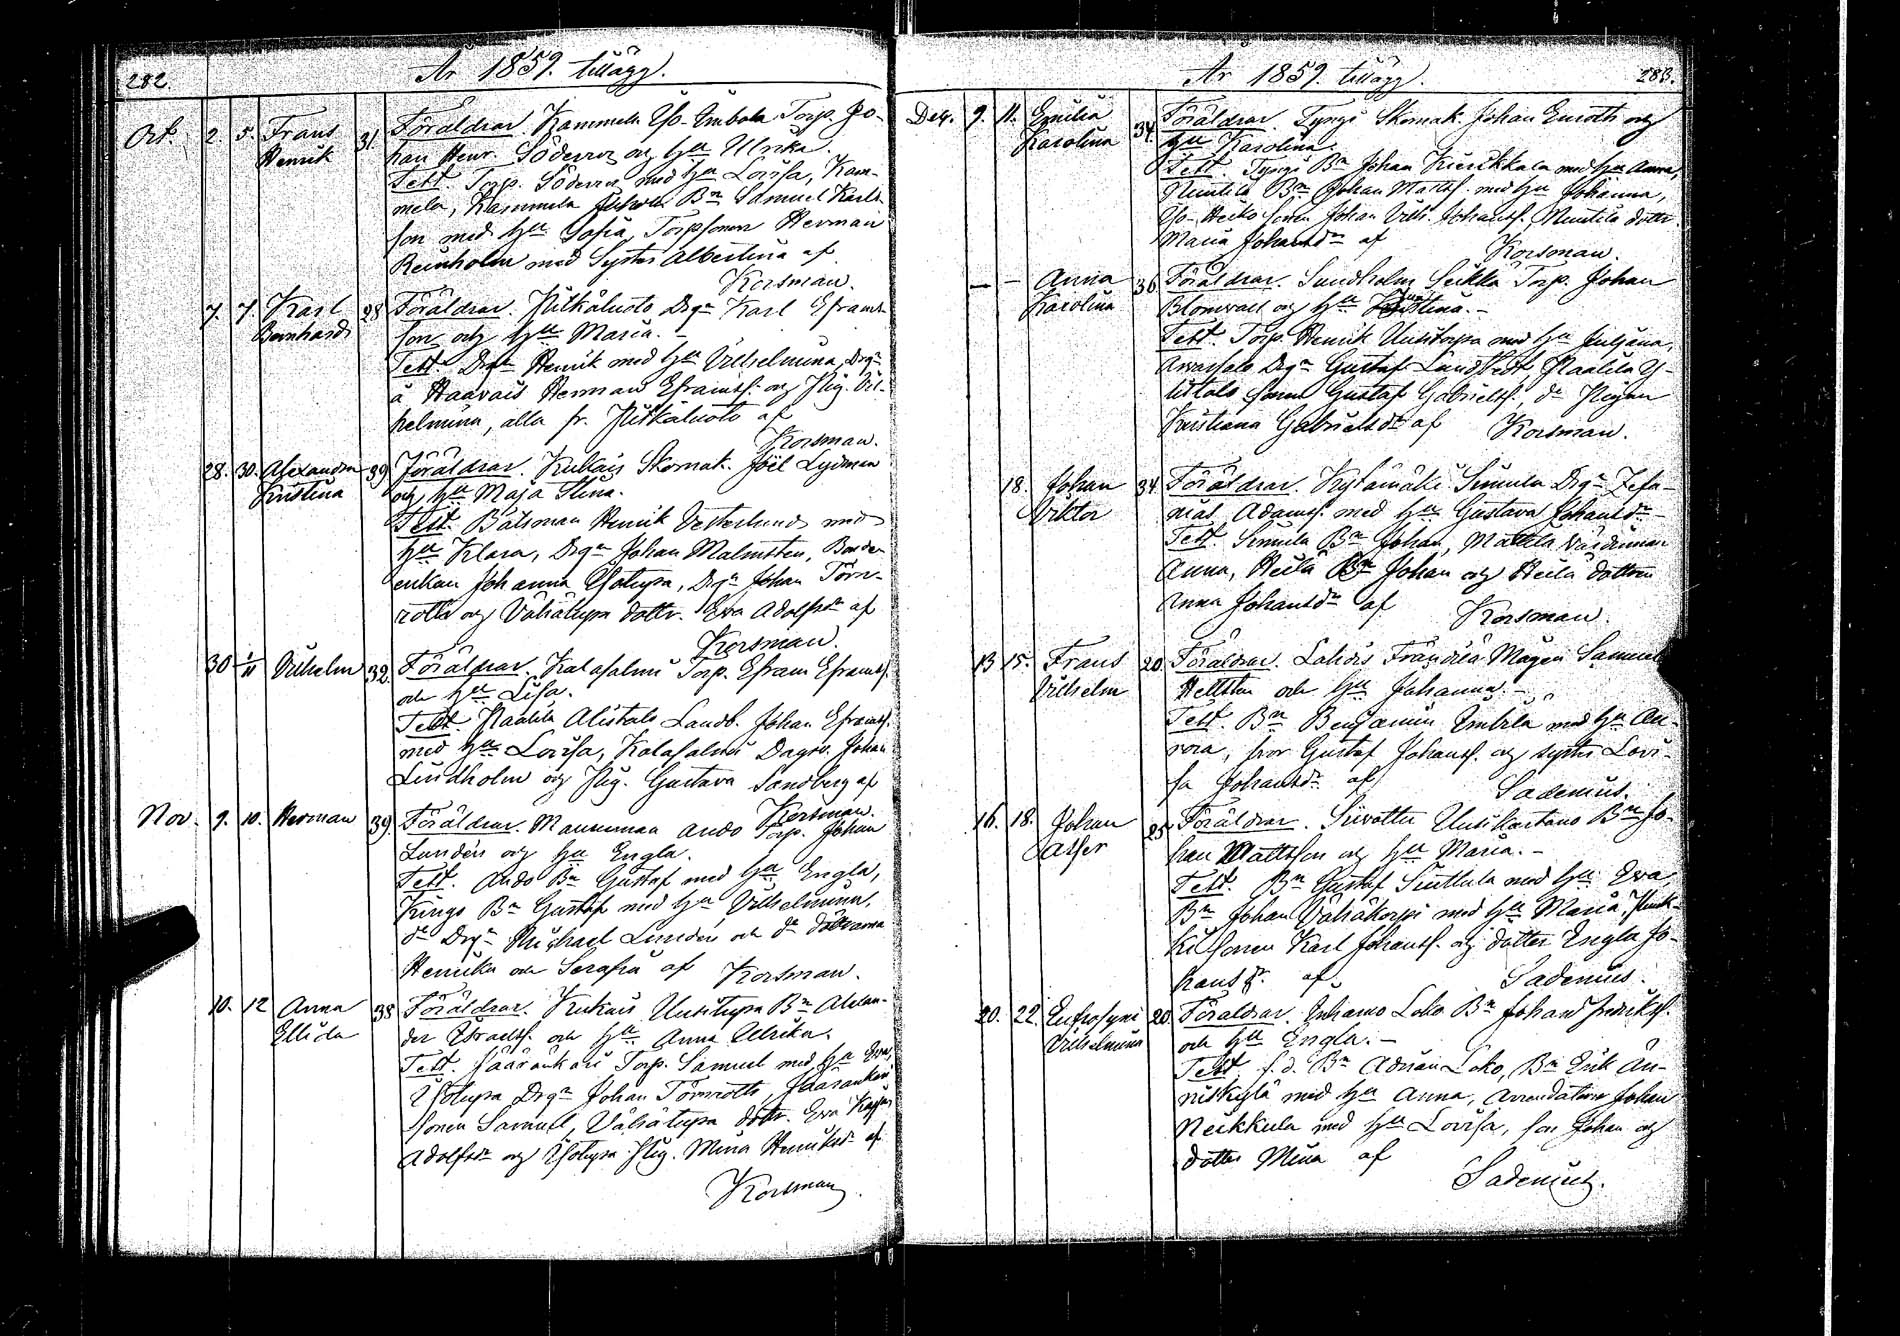 282.
År 1859. tillägg.
Oct. 2. 5. Frans Henrik 31. Föräldrar. Kammela Yso-Imbola Torp. Jo-
han Henr. Söderros och Hu Ulrika.
Test. Torp. Söderros med Hu Lovisa, Kam-
mela, Kammela Bn Samuel Karls-
son med Hu Sofia, Torpsonen Herman
Reinholm med Syster Albertina af
Korsman.
7. 7. Karl Bernhard 28 Föräldrar. Pitkäluoto Drgn Karl Eframs-
son och Hu Maria.
Test. Drgn Henrik med Hu Vilhelmina, Drgn
å Haavais Herman Eframsf. och Pig. Vil-
helmina, alla fr. Pitkäluoto af
Korsman.
28. 30. Alexandra Kristina 39 Föräldrar. Kukais Skomak. Joël Lydman
och Hu Maja Stina.
Test. Båtsman Henrik Vesterlund med
Hu Klara, Drgn Johan Malmsten, Bonde-
enkan Johanna Isotupa, Drgn Johan Törn-
roth och Vähätupa dottr. Eva Adolfsdr af
Korsman.
30 1/11 Vilhelm 32. Föräldrar. Kalasalmi Torp. Efram Eframsf.
och Hu Lisa.
Test. Raalila Alistalo Landb. Johan Eframsf.
med Hu Lovisa, Kalasalmi Dragn. Johan
Lindholm och Pig. Gustava Sandberg af
Korsman.
Nov. 9. 10. Herman 39. Föräldrar. Mannermaa Ando Torp. Johan
Lundén och Hu Engla.
Test. Ando Bn Gustaf med Hu Engla,
Kings Bn Gustaf med Hu Vilhelmina,
dn Drgn Michael Lundén och dn döttrarna
Henrika och Serafia af Korsman.
10. 12 Anna Ellida 38 Föräldrar. Kukais Uusitupa Bn Alexan-
der Israelsf. och Hu Anna Ulrika.
Test. Jääränkari Torp. Samuel med Hu Eva,
Isotupa Drgn Johan Törnroth, Jäärankari
sonen Samuel, Vähätupa dottr. Eva Kajsa
Adolfsdr och Isotupa Pig. Mina Henriksdr af
Korsman.
År 1859. tillägg.
283.
Dec. 9. 11. Emilia Karolina 34. Föräldrar. Tyngi Skomak. Johan Enroth och
Hu Karolina.
Test. Tyngi Bn Johan Kierikkala med Hu Anna,
Nuutila Bn Johan Mattsf. med Hu Johanna,
Yso-Heiko sonen Johan Vilh. Johansf. Nuutila dottr.
Maria Johansdr af Korsman.
— — Anna Karolina 36 Föräldrar. Sundholm Seikka Torp. Johan
Blomvall och Hu Justina.
Test. Torp. Henrik Uusitorpa med Hu Juliana,
Arvassalo Drgn Gustaf Lindstedt, Raalila Y-
listalo sonen Gustaf Gabrielsf., dn Pigan
Kristiana Gabrielsdr af Korsman.
18. Johan Viktor 34. Föräldrar. Kylämäki Simula Drgn Zefa-
nias Adamsf. med Hu Gustava Johansdr
Test. Simula Bn Johan, Mattila Värdinnan
Anna, Heilä Bn Johan och Heilä dottren
Anna Johansdr af Korsman.
13 15. Frans Vilhelm 20. Föräldrar. Lahdis Frändilä Mågen Samuel
Hellsten och Hu Johanna.
Test. Bn Benjamin Imbilä med Hu Au-
rora, bror Gustaf Johansf. och syster Lovi-
sa Johansdr af Sadenius.
16. 18. Johan Asser 25 Föräldrar. Siivattu Uusikartano Bn Jo-
han Mattsson och Hu Maria.
Test. Bn Gustaf Suttula med Hu Eva
Bn Johan Vähäkorpi med Hu Maria,
sonen Karl Johansf. och dotter Engla Jo-
hansdr. af Sadenius.
20. 22. Eufrosyni Vilhelmina 20 Föräldrar. Inhamo Loko Bn Johan Fredriksf.
och Hu Engla.
Test. f.d. Bn Adrian Loko, Bn Erik Än-
niskylä med Hu Anna, Arrendatorn Johan
Neikkula med Hu Lovisa, son Johan och
dotter Mina af
Sadenius.